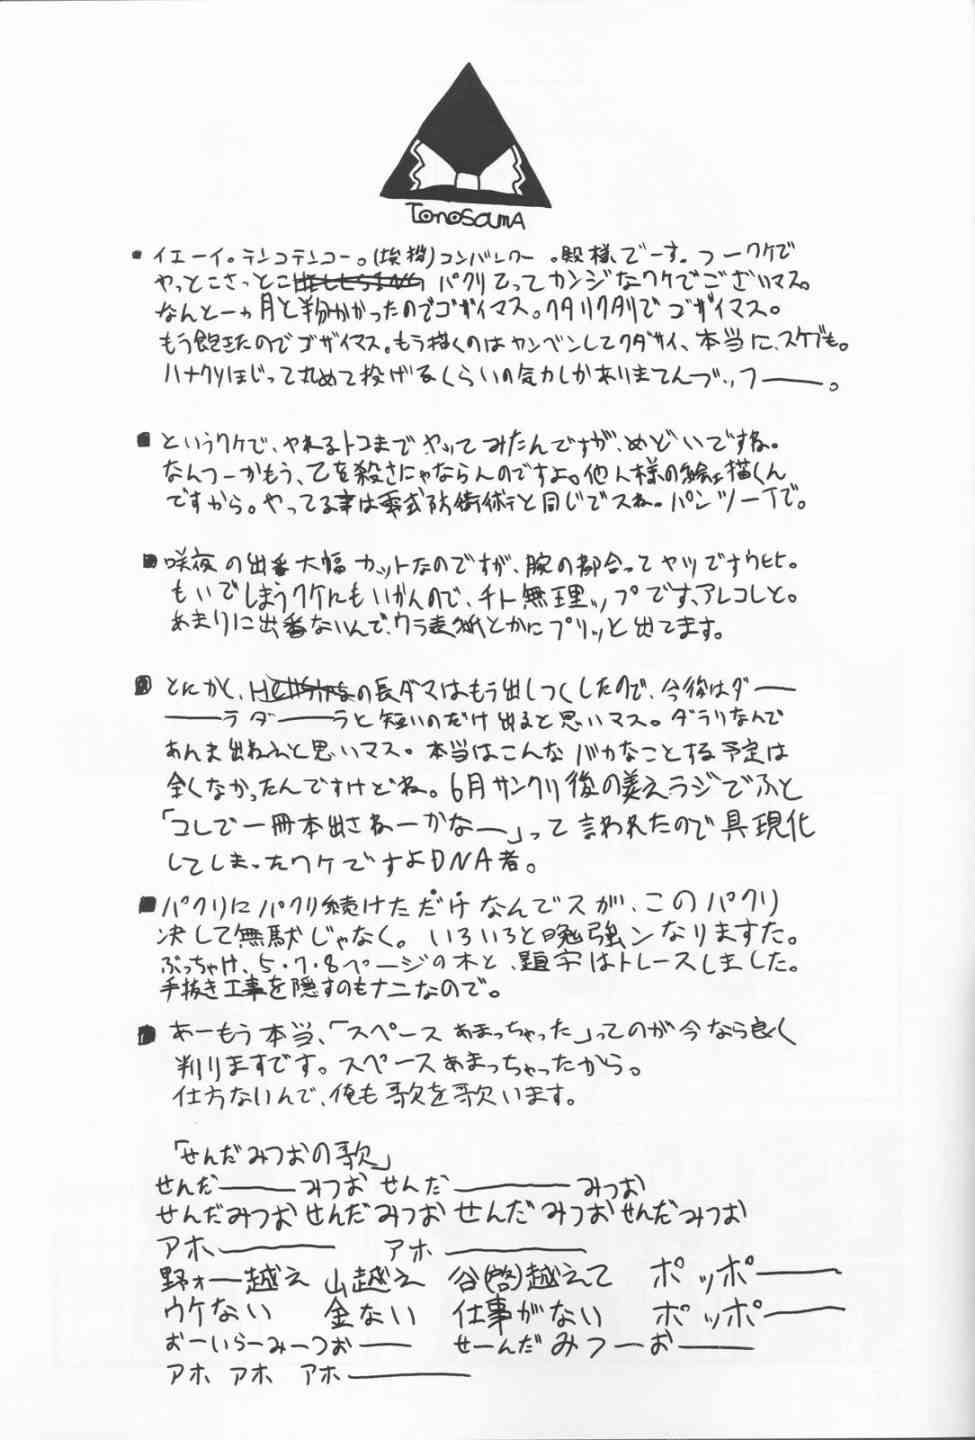 TonosamA
■ イエーイ。テンコテンコー。(挨拶)コンバンワー。殿様でーす。つーワケで
やっとこさっとこ HELLSING パクリてってカンジなワケでございマス。
なんと一ヵ月と半分かかったのでゴザイマス。クタリクタリでゴザイマス。
もう飽きたのでゴザイマス。もう描くのはカンベンしてクダサイ、本当に、スケブも。
ハナクソほじって丸めて投げるくらいの気力しかありませんブッフ――。
■ というワケで、やれるトコまでヤッてみたんですが、めどいですね。
なんつーかもう、乙を殺さにゃならんのですよ。他人様の絵描くん
ですから。やってる事は零式防衛術と同じでスね。パンツ一丁で。
■ 咲夜の出番大幅カットなのですが、腕の都合ってヤツですウヒヒ。
もいでしまうワケにもいかんので、チト無理ップです、アレコレと。
あまりに出番ないんで、ウラ表紙とかにプリッと出てます。
■ とにかく、Hellsingの長ダマはもう出しつくしたので、今後はダ――
――ラダ――ラと短いのだけ出ると思いマス。ダラリなんで
あんま出ねえと思いマス。本当はこんなバカなことする予定は
全くなかったんですけどね。6月サンクリ後の美えラジでふと
「コレで一冊本出さねーかなー」って言われたので具現化
してしまったワケですよDNA者。
■ パクリにパクリ続けただけなんでスが、このパクリ
決して無駄じゃなく。いろいろと勉強ンなりますた。
ぶっちゃけ、5・7・8ページの木と、題字はトレースしました。
手抜き工事を隠すのもナニなので。
■ あーもう本当、「スペースあまっちゃった」ってのが今なら良く
判りますです。スペースあまっちゃったから。
仕方ないんで、俺も歌を歌います。
「せんだみつおの歌」
せんだ――みつお せんだ――みつお
せんだみつお せんだみつお せんだみつお せんだみつお
アホ―― アホ――
野ォー越え 山越え 谷(啓)越えて ポッポ――
ウケない 金ない 仕事がない ポッポ――
おーいらーみーつおー―― せーんだみつーお――
アホ アホ アホ――